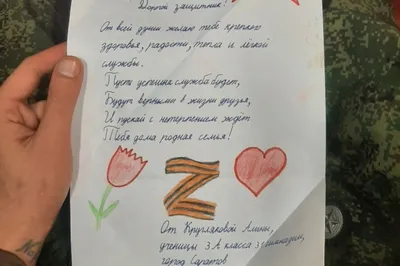 Дорогой защитник!
От всей души желаю тебе крепкого
здоровья, радости, тепла и лёгкой
службы.
Пусть успешна служба будет,
Будут верными в жизни друзья,
И пускай с нетерпением ждёт
Тебя дома родная семья!
Z
От Кругляковой Алины,
ученицы 3 А класса
город Саратов